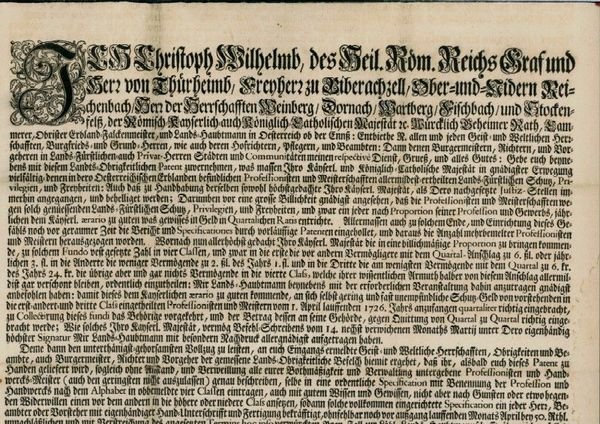 ICH Christoph Wilhelmb, des Heil. Röm. Reichs Graf und
Herr von Thürheimb / Freyherr zu Biberachzell / Ober-und-Nidern Rei-
chenbach / Herr der Herrschafften Weinberg / Dornach / Wartberg / Fischbach / und Stocken-
felß, der Römisch. Kayserlich. auch Königlich Catholischen Majestät ꝛc. Würcklich Geheimer Rath, Cam-
merer, Obrister Erbland-Falckenmeister, und Lands-Haubtmann in Oesterreich ob der Ennß: Entbiete N. allen und jeden Geist- und Weltlichen Herr-
schafften, Burgfrieds- und Grund-Herren, wie auch deren Hofrichtern, Pflegern, und Beambten: Dann denen Burgermeistern, Richtern, und Vor-
gehern in Lands-Fürstlichen-auch Privat-Herren Städten und Communitäten meinen respective Dienst, Grueß, und alles Gutes: Gebe euch beyne-
bens mit diesem Lands-Obrigkeitlichen Patent zuvernehmen, was massen Ihro Käyserl. und Königlich-Catholische Majestät in gnädigster Erwegung
vilfältig-denen in dero Oesterreichischen Erblanden befindlichen Professionisten und Meisterschafften allermildest ertheilten Lands-Fürstlichen Schutz, Pri-
vilegien, und Freyheiten: Auch daß zu Handhabung derselben sowohl höchstgedacht Ihro Käyserl. Majestät, als Dero nachgesetzte Justiz-Stellen im-
merhin angegangen, und behelliget werden: Darumben vor eine grosse Billichkeit gnädigst angesehen, daß die Professionisten und Meisterschafften we-
gen sold geniessenden Lands-Fürstlichen Schutz, Privilegien, und Freyheiten, und zwar ein jeder nach Proportion seiner Profession und Gewerbs, jähr-
lichen dem Käyserl. ærario zu guten was gewisses in Geld in Quartalichen Ratis entrichte. Allermassen auch zu solchem Ende, und Einrichtung dieses Ge-
fähls noch vor geraumer Zeit die Bericht und Specificationes durch vorläuffige Patenten eingehollet, und daraus die Anzahl mehrbemelter Professionisten
und Meistern herausgezogen worden. Wornach nun allerhöchst gedacht Ihro Käyserl. Majestät die in eine billichmäßige Proportion zu bringen kommen-
de, zu solchem Fundo vest gesetzte Zahl in vier Classen, und zwar in die erste die vor andern Vermöglichere mit dem Quartal-Anschlag zu 6. fl. oder jähr-
lichen 2. fl. in die änderte die weniger Vermögende mit dem Quartal zu
des Jahrs 24. kr. die übrige aber und gar nichts Vermögende in die vierte Class, welche ihrer wissentlichen Armuth halber von diesem Anschlag allermil-
dist gar verschont bleiben, ordentlich einzutheilen: Mir Lands-Haubtmann beynebens mit der erforderlichen Veranstaltung dahin anzutragen gnädigst
anbefohlen haben: damit dieses dem Kayserlichen ærario zu guten kommende, an sich selbst gering und fast unempfindliche Schutz-Geld von vorstehenden in
die erst andert- und dritte Class eingetheilten Professionisten und Meistern vom 1. April lauffenden 1726. Jahrs anzufangen quartaliter richtig eingebracht,
zu Collectirung dieses fundi das Behörige vorgekehrt, und der Betrag dessen an seine Gehörde, gegen Quittung von Quartal zu Quartal richtig einge-
bracht werde: Wie solches Ihro Käyserl. Majestät, vermög Befehl-Schreibens vom 14. nechst verwichenen Monaths Martij unter Dero eigenhändig
höchster Signatur Mir Lands-Haubtmann mit besondern Nachdruck allergnädigst aufgetragen haben.
Deme dann den unterthänigst-gehorsamsten Vollzug zu leisten, an euch Eingangs ernente Geist- und Weltliche Herrschafften, Obrigkeiten und Be-
ambte, auch Burgermeister, Richter und Vorgeher der gemessene Lands-Obrigkeitliche Befelch hiemit ergehet, daß ihr, alsbald euch dieses Patent zu
Handen geliefert wird, sogleich ohne Anstand, und Verweilung alle eurer Bottmäßigkeit und Verwaltung untergebene Professionisten und Hand-
wercks-Meister (auch den geringsten nicht auszulassen) genau beschreiben, selbe in eine ordentliche Specification mit Benennung der Profession und
Handwercks nach dem Alphabet in obbemelde vier Classen eintragen, auch mit gutem Wissen und Gewissen, nicht aber nach Gunsten oder etwohegen-
den Widerwillen einen vor dem andern in die höhere oder niedere Class ansetzen, sodann solche vollkommen eingerichte Specification ein jeder Herr, Be-
ambter oder Vorsteher mit eigenhändiger Hand-Unterschrifft und Fertigung bekräfftigt, ohnfehlbar noch vor ausgang lauffenden Monats April bey 50. Rthl.